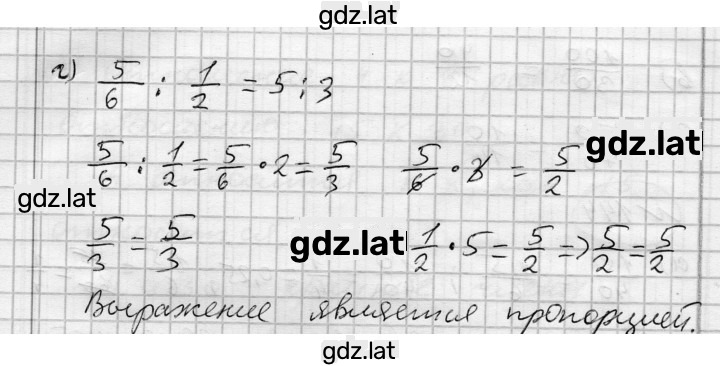 gdz.lat
г) 5/6 : 1/2 = 5 : 3
5/6 : 1/2 = 5/6 · 2 = 5/3 5/6 · 3 = 5/2
gdz.lat
gdz.lat
5/3 = 5/3 1/2 · 5 = 5/2 => 5/2 = 5/2
gdz.lat
Выражение является пропорцией.
gdz.lat